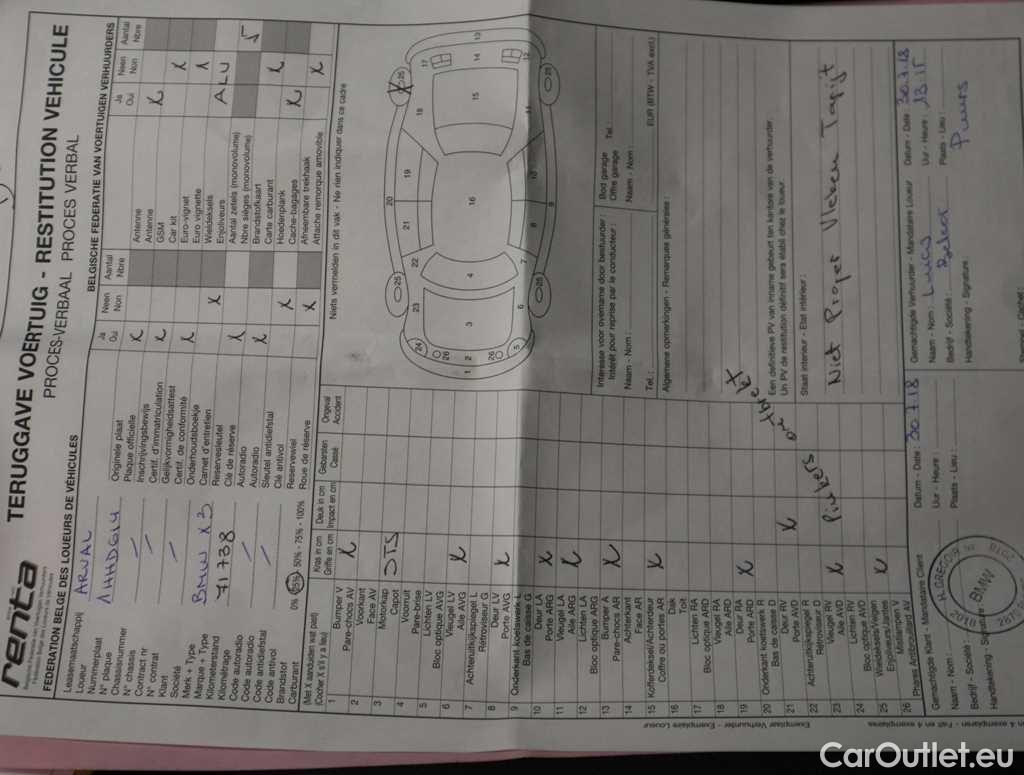 renta
TERUGGAVE VOERTUIG - RESTITUTION VEHICULE
PROCES-VERBAAL PROCES VERBAL
FEDERATION BELGE DES LOUEURS DE VÉHICULES
BELGISCHE FEDERATIE VAN VOERTUIGEN VERHUURDERS
Leasemaatschappij
Loueur
ARVAL
Nummerplaat
N° plaque
1HHD614
Chassisnummer
N° chassis
Contract nr
N° contrat
Klant
Société
Merk + Type
Marque + Type
BMW X3
Kilometerstand
Kilométrage
71738
Code autoradio
Code autoradio
Code antidiefstal
Code antivol
Brandstof
Carburant
0% 25% - 50% - 75% - 100%
Ja
Oui
Neen
Non
Aantal
Nbre
Originele plaat
Plaque officielle
X
Inschrijvingsbewijs
Certif. d'immatriculation
X
Gelijkvormigheidsattest
Certif. de conformité
X
Onderhoudsboekje
Carnet d'entretien
Reservesleutel
Clé de réserve
Autoradio
Autoradio
Sleutel antidiefstal
Clé antivol
Reservewiel
Roue de réserve
Ja
Oui
Neen
Non
Aantal
Nbre
Antenne
Antenne
GSM
Car kit
Euro-vignet
Euro vignette
Wieldeksels
Enjoliveurs
ALU
Aantal zetels (monovolume)
Nbre sièges (monovolume)
Brandstofkaart
Carte carburant
Hoedenplank
Cache-bagages
Afneembare trekhaak
Attache remorque amovible
(Met X aanduiden wat past)
(Cocher X s'il y a lieu)
Kras in cm
Griffe en cm
Deuk in cm
Impact en cm
Gebarsten
Cassé
Ongeval
Accident
1 Bumper V
2 Pare-chocs AV X
Voorkant
3 Face AV
Motorkap
4 Capot
Voorruit
5 Pare-brise
Lichten LV
6 Bloc optique AVG
Vleugel LV
7 Aile AVG X
Achteruitkijkspiegel L
8 Rétroviseur G
Deur LV
Porte AVG X
9 Onderkant koetswerk L
Bas de caisse G
10 Deur LA
Porte ARG X
11 Vleugel LA
Aile ARG X
12 Lichten LA
Bloc optique ARG
13 Bumper A
Pare-chocs AR X
14 Achterkant
Face AR
15 Kofferdeksel/Achterdeur
Coffre ou portes AR X
16 Dak
Toit
17 Lichten RA
Bloc optique ARD
18 Vleugel RA
19 Deur RA
Porte ARD X
20 Onderkant koetswerk R
Bas de caisse D
21 Deur RV
Porte AVD X
22 Achteruitkijkspiegel R
Rétroviseur D
23 Vleugel RV
Aile AVD X
24 Lichten RV
Bloc optique AVD
25 Wieldeksels/Velgen
Enjoliveurs/Jantes X
26 Mistlampen AV
Phares Antibrouillard AV
Niets vermelden in dit vak - Ne rien indiquer dans ce cadre
Interesse voor overname door bestuurder :
Intérêt pour reprise par le conducteur :
Naam - Nom :
Tel. :
Bod garage
Offre garage
Tel. :
Naam - Nom :
EUR (BTW - TVA excl.)
Algemene opmerkingen - Remarques générales :
Een definitieve PV van inname gebeurt ten kantore van de verhuurder.
Un PV de restitution définitif sera établi chez le loueur.
Staat interieur - Etat intérieur :
Niet Proper Vlekken Tapijt
Gemachtigde Klant - Mandataire Client
Datum - Date : 30.7.18
Naam - Nom :
Uur - Heure :
Bedrijf - Société :
Plaats - Lieu :
Handtekening - Signature :
BMW
Gemachtigde Verhuurder - Mandataire Loueur
Datum - Date : 30.7.18
Naam - Nom : Lucas
Uur - Heure : 13.15
Bedrijf - Société :
Plaats - Lieu : Puurs
Handtekening - Signature :
Exemplaar Verhuurder - Exemplaire Loueur
CarOutlet.eu